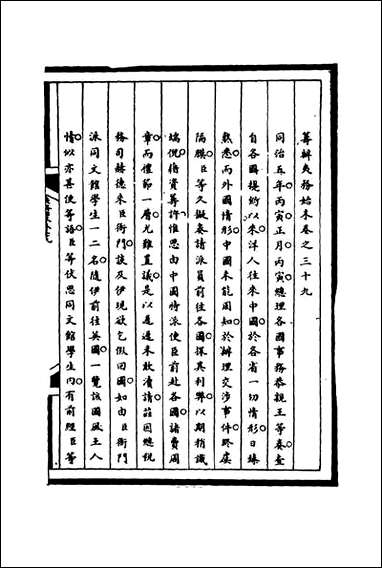 籌辦夷務始末卷之三十九
同治五年丙寅正月丙寅總理各國事務恭親王等奏查
自各國換約以來洋人往來中國於各省一切情形日臻
熟悉而外國情形中國未能周知於辦理交涉事件終虞
隔膜臣等久擬奏請派員前往各國探其利弊以期稍識
端倪藉資籌計惟思由中國特派使臣前赴各國諸費周
章而禮節一層尤難置議是以遲遲未敢瀆請茲因總稅
務司赫德來臣衙門談及伊現欲乞假回國如由臣衙門
派同文館學生一二名隨伊前往英國一覽該國風土人
情似亦甚便等語臣等伏思同文館學生內有前經臣等